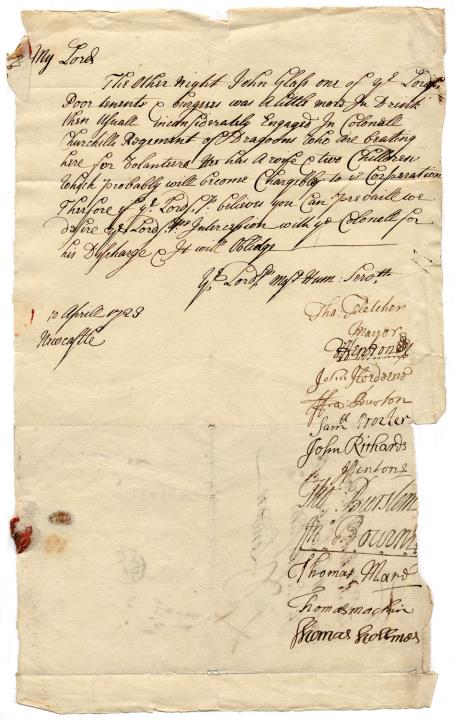 My Lord
The Other night John Glass one of ye Lordps
Poor tenents & burgesses was a little more In Drink
then usuall inconsiderately Engaged In Colonell
Churchills Regement of Dragoons who are beating
here for Volunteers He has A wife & two Children
which probably will become Chargible to ye Corporation
Therfore if yr Lordspp believes you Can prevaile we
desire yr Lordspps Intercession with ye Colonell for
his Discharge & It will Oblidge
Yr Lordpps Most Hum: Servtts
10 Aprill 1728
Newcastle
Tho: Fletcher
Mayor
John
Burton
Samll Proctor
John Richards
Tho: Burslem
Jno Bourne
Thomas Mare
Thomas mackin
Thomas Hollmes